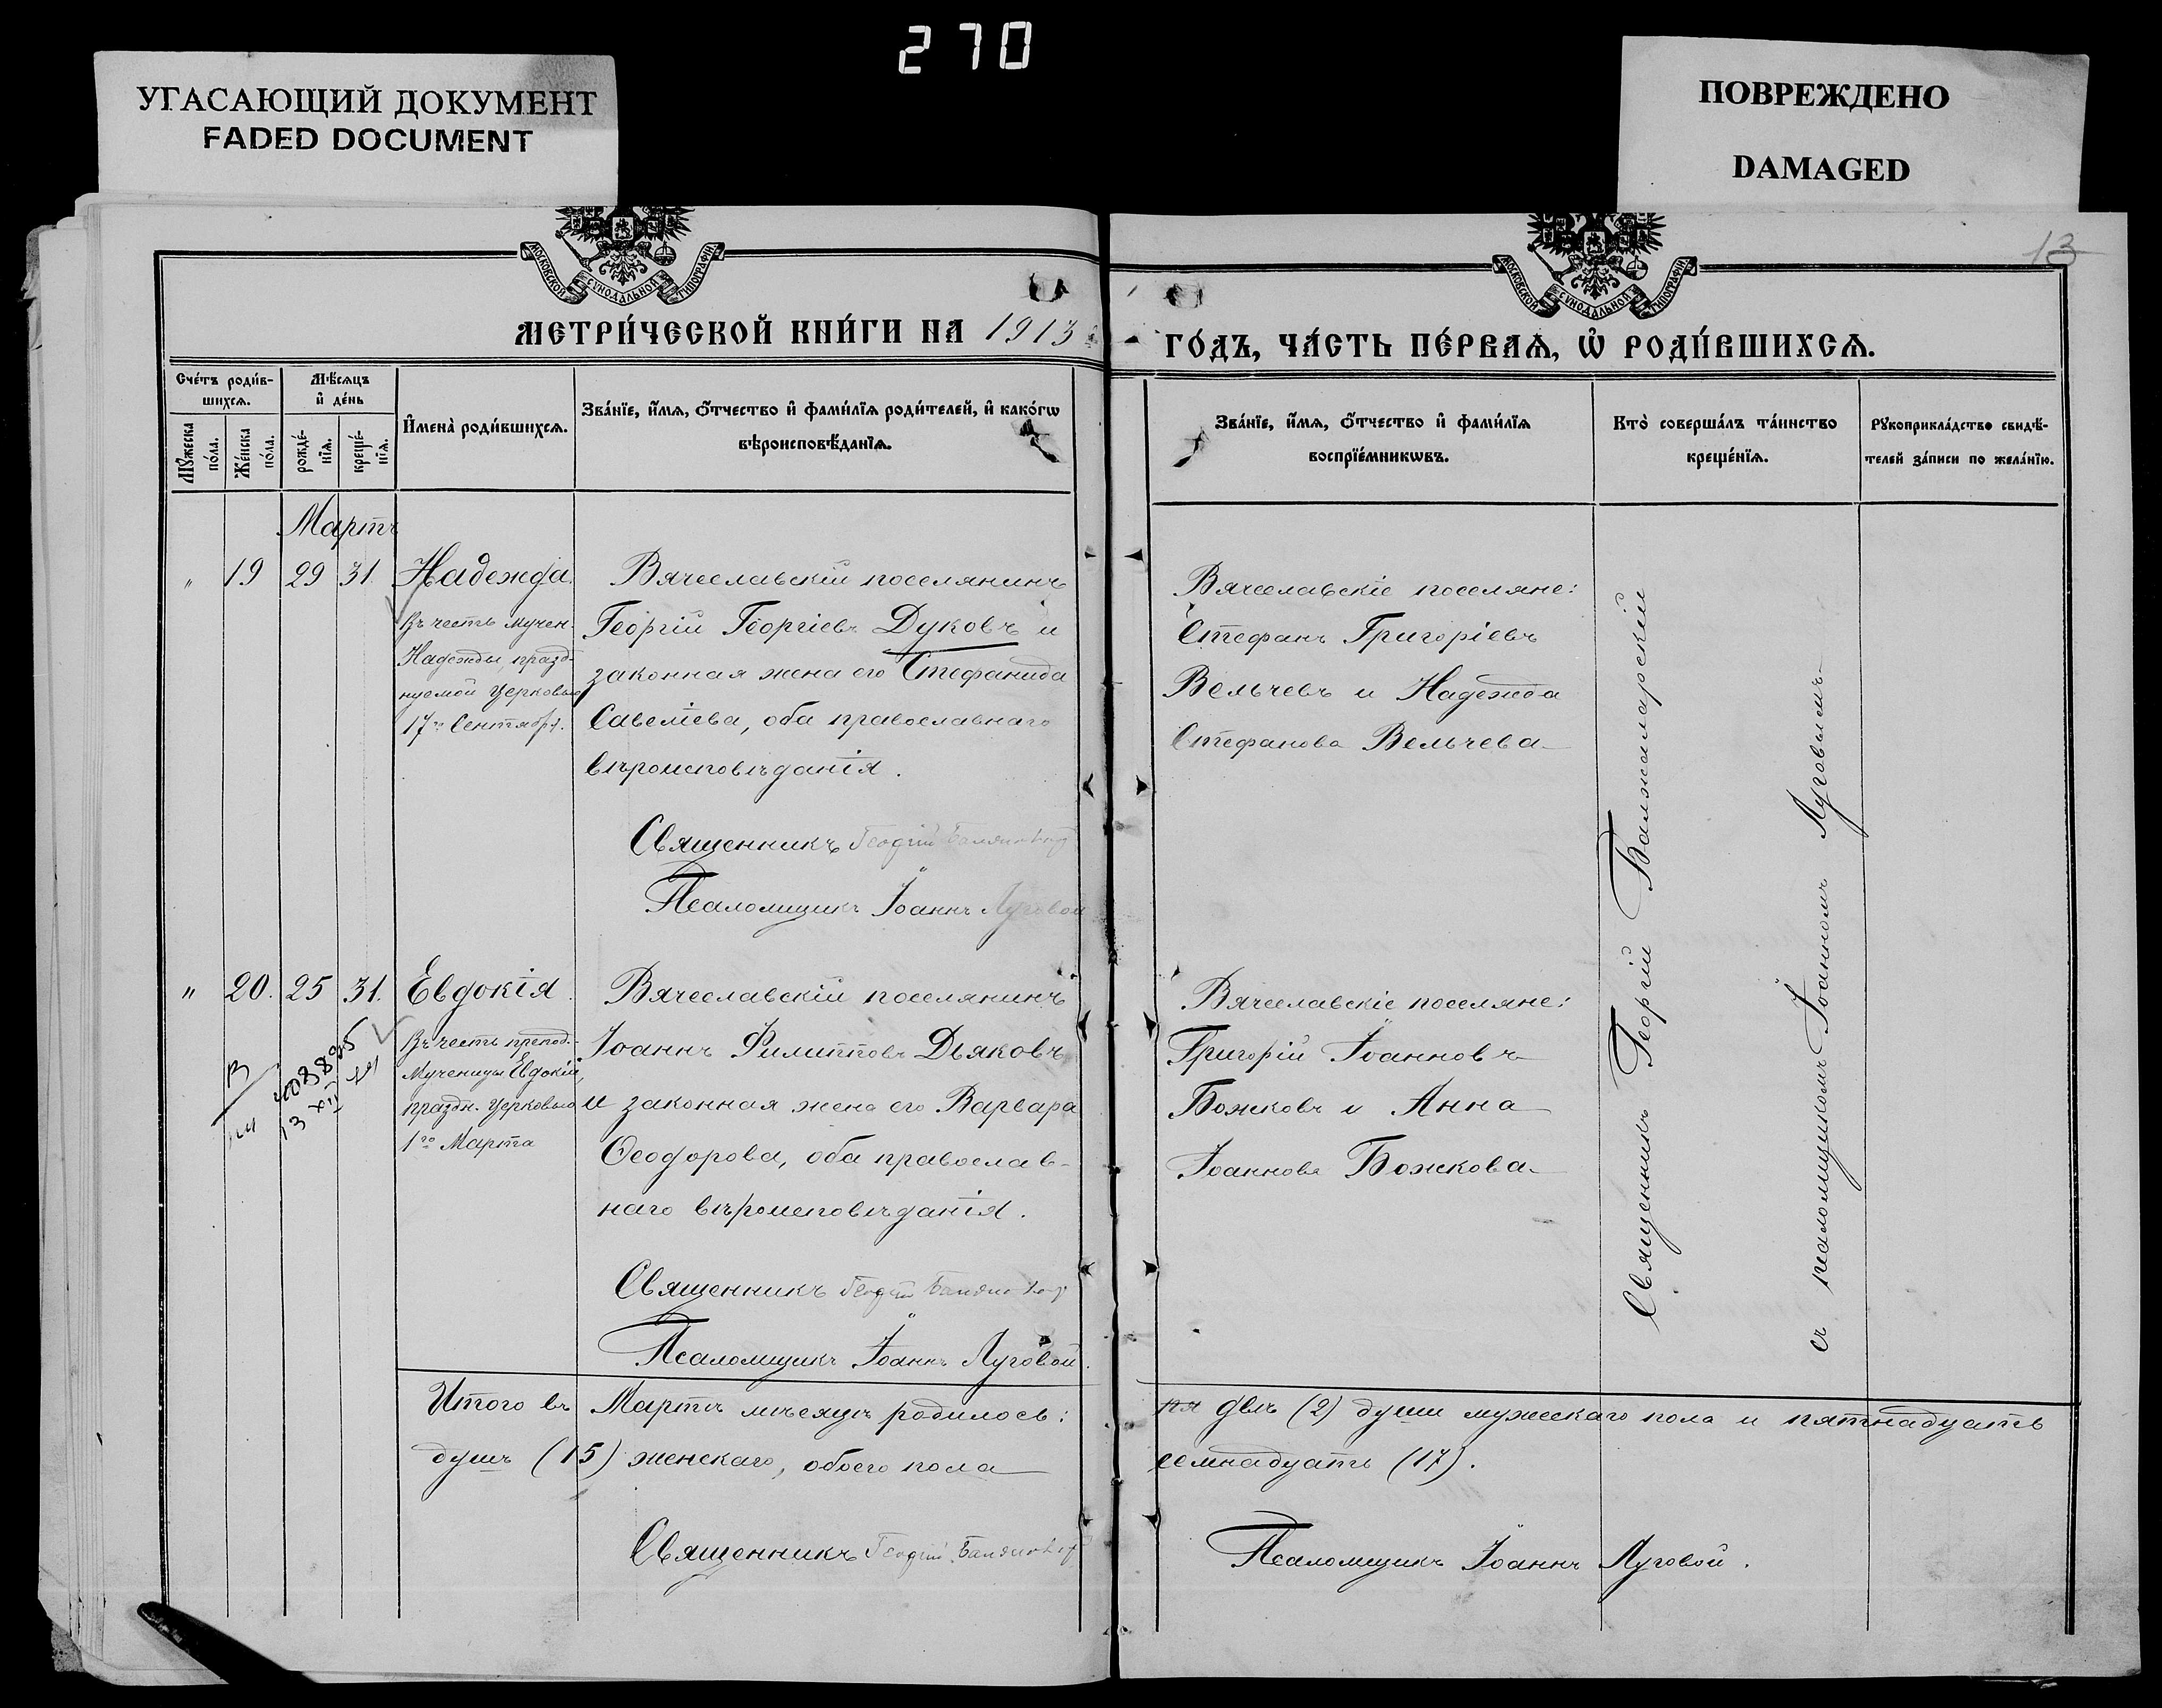 270
УГАСАЮЩИЙ ДОКУМЕНТ
FADED DOCUMENT
ПОВРЕЖДЕНО
DAMAGED
МОСКОВСКОЙ СѴНОДАЛЬНОЙ ТИПОГРАФІИ
МОСКОВСКОЙ СѴНОДАЛЬНОЙ ТИПОГРАФІИ
13
МЕТРИ́ЧЕСКОЙ КНИ́ГИ НА 1913
ГО́ДЪ, ЧА́СТЬ ПЕ́РВАѦ, Ѡ҆ РОДИ́ВШИХСѦ.
Сче́тъ роди́в-
шихсѧ.
Мѣ́сѧцъ
и҆ де́нь
Мꙋ́жеска по́ла.
Же́нска по́ла.
рожде́-
нїѧ.
креще́-
нїѧ.
И҆мена̀ роди́вшихсѧ.
Зва́нїе, и҆́мѧ, ѻ҆́тчество и҆ фами́лїѧ роди́телей, и҆ како́гѡ
вѣроисповѣ́данїѧ.
Зва́нїе, и҆́мѧ, ѻ҆́тчество и҆ фами́лїѧ
воспрїе́мникѡвъ.
Кто̀ соверша́лъ та́инство
креще́нїѧ.
Рꙋкоприкла́дство свидѣ́-
телей за́писи по жела́нїю.
Мартъ
" 19 29 31 Надежда.
Въ честь мучен.
Надежды, празд-
нуемой Церковью
17го Сентября.
Вячеславскій поселянинъ
Георгій Георгіевъ Дуковъ и
законная жена его Стефанида
Савеліева, оба православнаго
вѣроисповѣданія.
Священникъ Георгій
Псаломщикъ Іоаннъ Луговой
Вячеславскіе поселяне:
Стефанъ Григоріевъ
Вельчевъ и Надежда
Стефанова Вельчева
Священникъ Георгій
съ псаломщикомъ Іоанномъ Луговымъ
" 20. 25 31. Евдокія.
Въ честь препод.-
Мученицы Евдокіи,
праздн. Церковью
1го Марта
13 XII
Вячеславскій поселянинъ
Іоаннъ Филипповъ Дьяковъ
и законная жена его Варвара
Ѳеодорова, оба православ-
наго вѣроисповѣданія.
Священникъ Георгій
Псаломщикъ Іоаннъ Луговой.
Вячеславскіе поселяне:
Григорій Іоанновъ
Божковъ и Анна
Іоаннова Божкова
Итого въ Мартѣ мѣсяцѣ родилось:
двѣ (2) души мужескаго пола и пятнадцать
душъ (15) женскаго, обоего пола
семнадцать (17).
Священникъ Георгій
Псаломщикъ Іоаннъ Луговой.